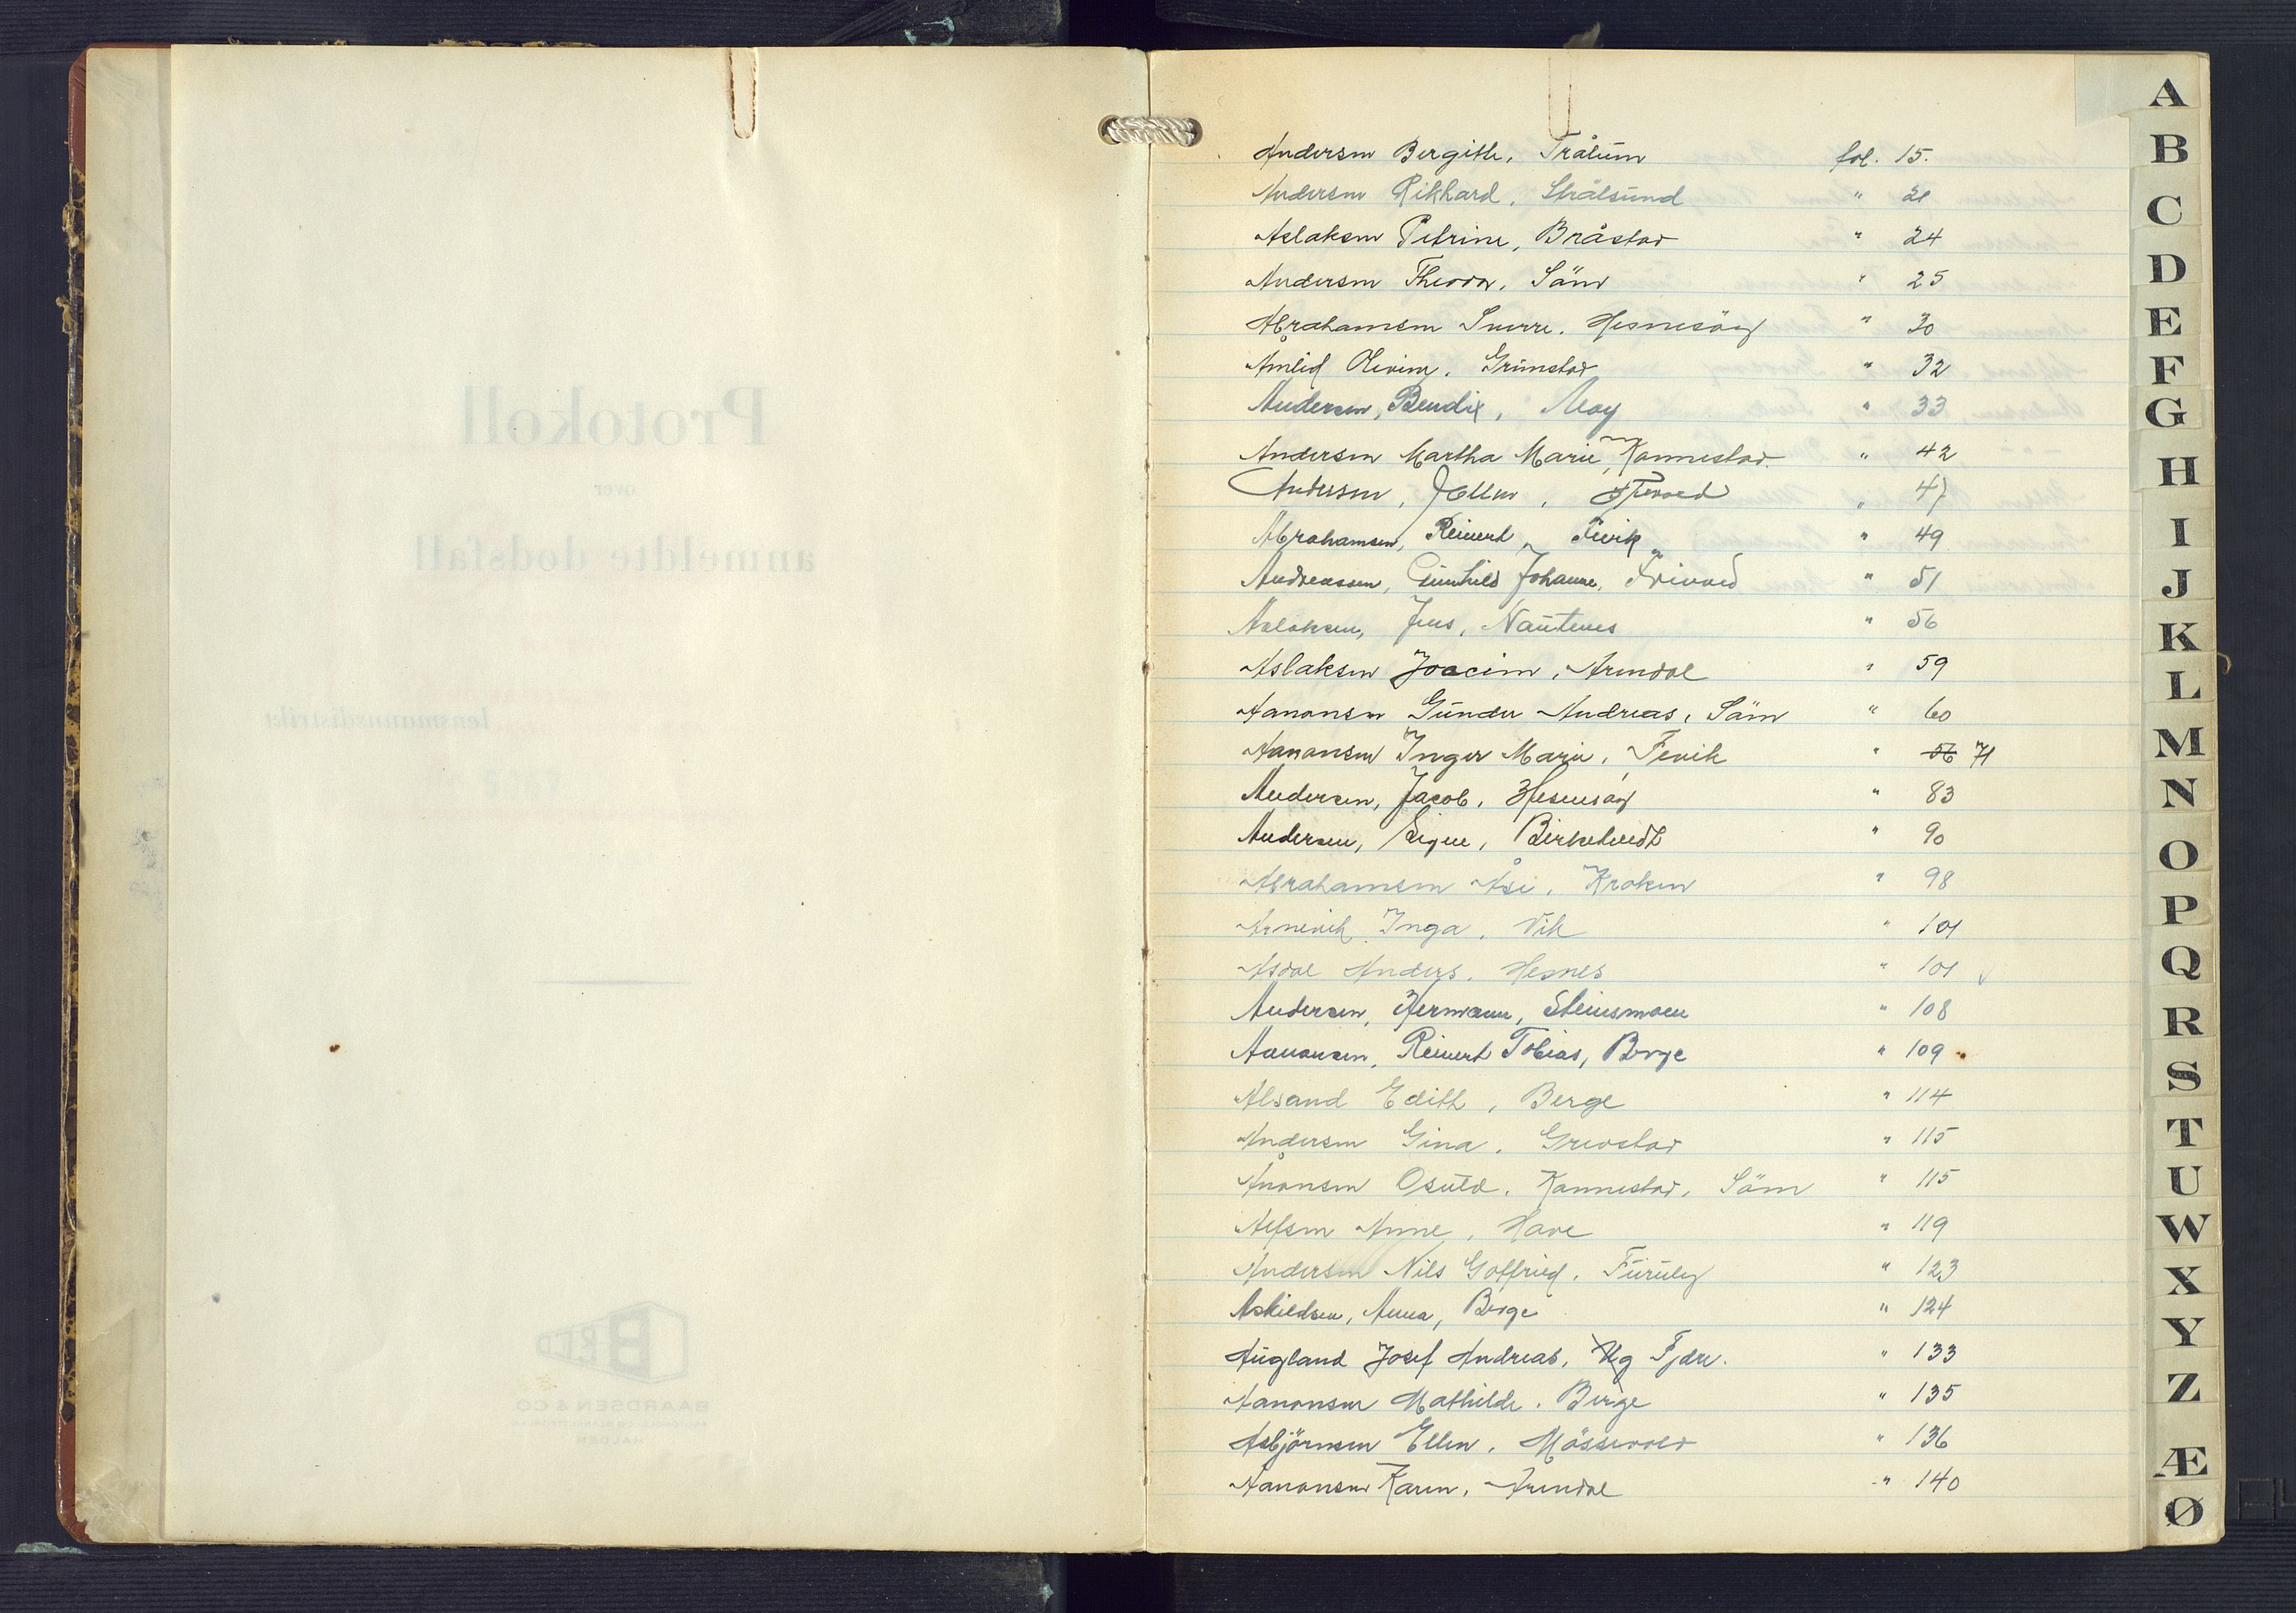 Protokoll
over
anmeldte dødsfall
i lensmannsdistrikt
BAARDSEN & CO
HALDEN
Andersen Bergithe, Trålum fol. 15.
Andersen Rikhard, Strålsund " 21
Aslaksen Petrine, Bråstad " 24
Andersen Theodor, Søm " 25
Abrahamsen Sverre, Hesnesøy " 30
Åmlid Olivine, Grimstad " 32
Andersen, Bendix, Moy " 33
Andersen Martha Marie, Kannestad " 42
Andersen, Ellen, " 47
Abrahamsen, Reinert, Fevik " 49
Andreassen, Gunhild Johanne, " 51
Aslaksen, Jens, Nautenes " 56
Aslaksen Joacim, Arendal " 59
Aanonsen Gunder Andreas, Søm " 60
Aanonsen Inger Marie, Fevik " 56 71
Andersen, Jacob, Hesnesøy " 83
Andersen, Signe, Birketveidt " 90
Abrahamsen Åse, Kroken " 98
Arnevik Inga, Vik " 101
Asdal Anders, Hesnes " 101
Andersen, Hermann, Steinsmoen " 108
Aanonsen, Reinert Tobias, Berge " 109
Alsand Edith, Berge " 114
Andersen Gina, Grevstad " 115
Ånonsen Osuld, Kannestad, Søm " 115
Alfsen Anne, Have " 119
Andersen Nils Gotfried, Furuly " 123
Askildsen, Anna, Berge " 124
Augland Josef Andreas, Fjære. " 133
Aanonsen Mathilde, Berge " 135
Asbjörnsen Ellen, " 136
Aanonsen Karen, Arendal " 140
A
B
C
D
E
F
G
H
I
J
K
L
M
N
O
P
Q
R
S
T
U
W
X
Y
Z
Æ
Ø